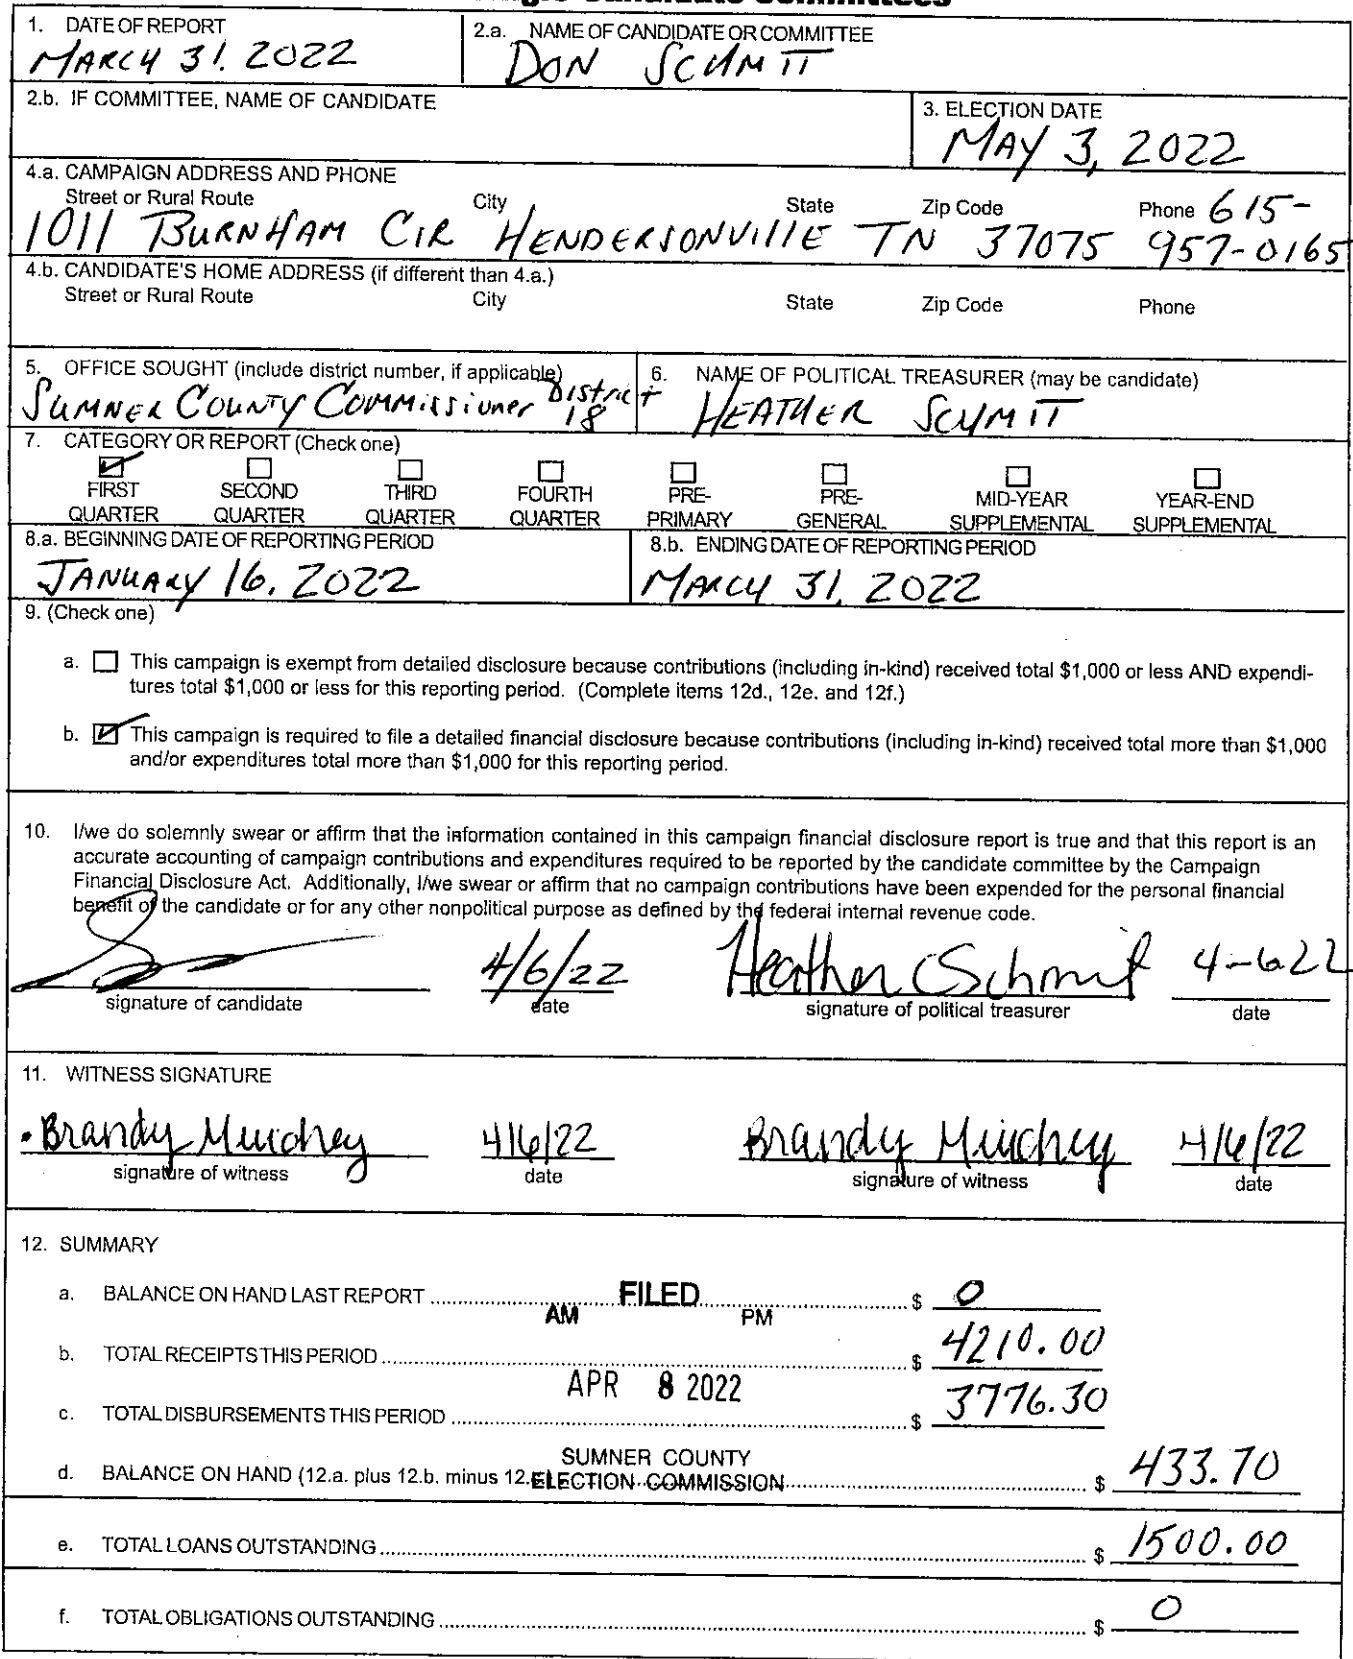 1. DATE OF REPORT
MARCH 31. 2022
2.a. NAME OF CANDIDATE OR COMMITTEE
DON SCHMITT
2.b. IF COMMITTEE, NAME OF CANDIDATE
3. ELECTION DATE
MAY 3, 2022
4.a. CAMPAIGN ADDRESS AND PHONE
Street or Rural Route City State Zip Code Phone 615-
1011 BURNHAM CIR HENDERSONVILLE TN 37075 957-0165
4.b. CANDIDATE'S HOME ADDRESS (if different than 4.a.)
Street or Rural Route City State Zip Code Phone
5. OFFICE SOUGHT (include district number, if applicable)
SUMNER COUNTY COMMISSIONER District 18
6. NAME OF POLITICAL TREASURER (may be candidate)
HEATHER SCHMITT
7. CATEGORY OR REPORT (Check one)
FIRST QUARTER
SECOND QUARTER
THIRD QUARTER
FOURTH QUARTER
PRE-PRIMARY
PRE-GENERAL
MID-YEAR SUPPLEMENTAL
YEAR-END SUPPLEMENTAL
8.a. BEGINNING DATE OF REPORTING PERIOD
JANUARY 16, 2022
8.b. ENDING DATE OF REPORTING PERIOD
MARCH 31, 2022
9. (Check one)
a. This campaign is exempt from detailed disclosure because contributions (including in-kind) received total $1,000 or less AND expendi-
tures total $1,000 or less for this reporting period. (Complete items 12d., 12e. and 12f.)
b. This campaign is required to file a detailed financial disclosure because contributions (including in-kind) received total more than $1,000
and/or expenditures total more than $1,000 for this reporting period.
10. I/we do solemnly swear or affirm that the information contained in this campaign financial disclosure report is true and that this report is an
accurate accounting of campaign contributions and expenditures required to be reported by the candidate committee by the Campaign
Financial Disclosure Act. Additionally, I/we swear or affirm that no campaign contributions have been expended for the personal financial
benefit of the candidate or for any other nonpolitical purpose as defined by the federal internal revenue code.
4/6/22 Heather Schmitt 4-6-22
signature of candidate date signature of political treasurer date
11. WITNESS SIGNATURE
Brandy 4/6/22 Brandy 4/6/22
signature of witness date signature of witness date
12. SUMMARY
a. BALANCE ON HAND LAST REPORT $ 0
FILED
AM PM
b. TOTAL RECEIPTS THIS PERIOD $ 4210.00
APR 8 2022
c. TOTAL DISBURSEMENTS THIS PERIOD $ 3776.30
SUMNER COUNTY
ELECTION COMMISSION
d. BALANCE ON HAND (12.a. plus 12.b. minus 12. $ 433.70
e. TOTAL LOANS OUTSTANDING $ 1500.00
f. TOTAL OBLIGATIONS OUTSTANDING $ 0